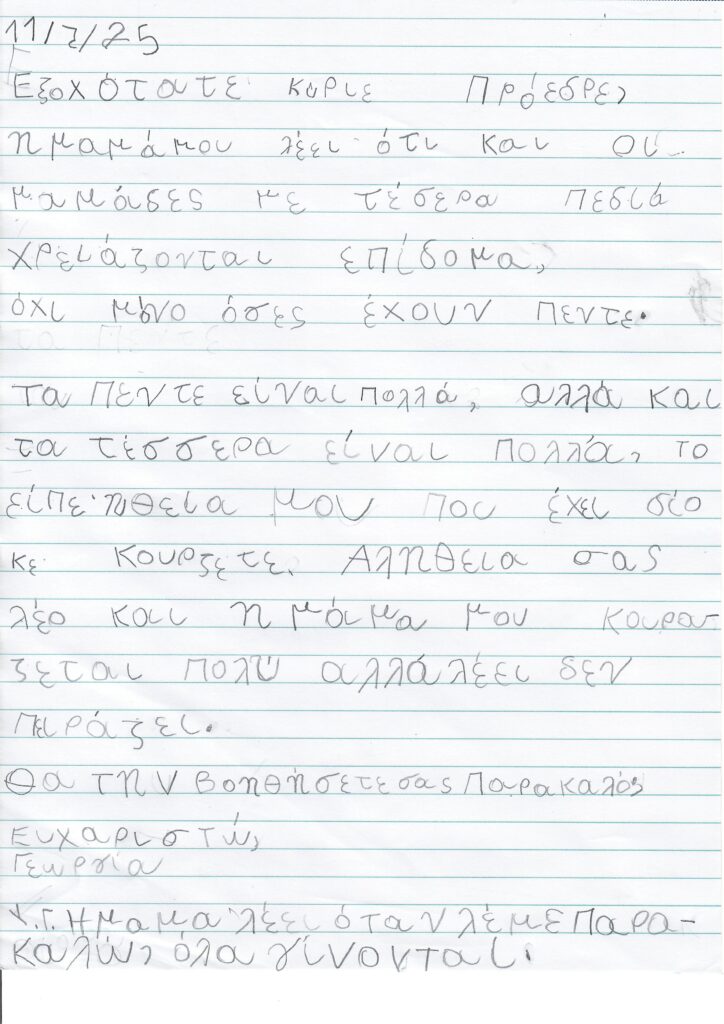 11/7/25
Εξοχότατε κυριε Πρόεδρε,
η μαμάμου λέει ότι και οι
μαμάδες με τέσερα πεδιά
χρειάζονται επίδομα,
όχι μόνο όσες έχουν πεντε.
τα πεντε είναι πολλά, αλλά και
τα τέσσερα είναι πολλά, το
είπε ηθεια μου που έχει διο
κε κουρζετε. Αληθεια σας
λέο και η μάμα μου κουρα-
ζεται πολύ αλλά λέει δεν
πειράζει.
Θα την βοηθήσετε σας παρακαλό;
Ευχαριστώ,
Γεωργία
Υ.Γ. Η μαμα λέει όταν λέμε παρα-
καλώ, όλα γίνονται.